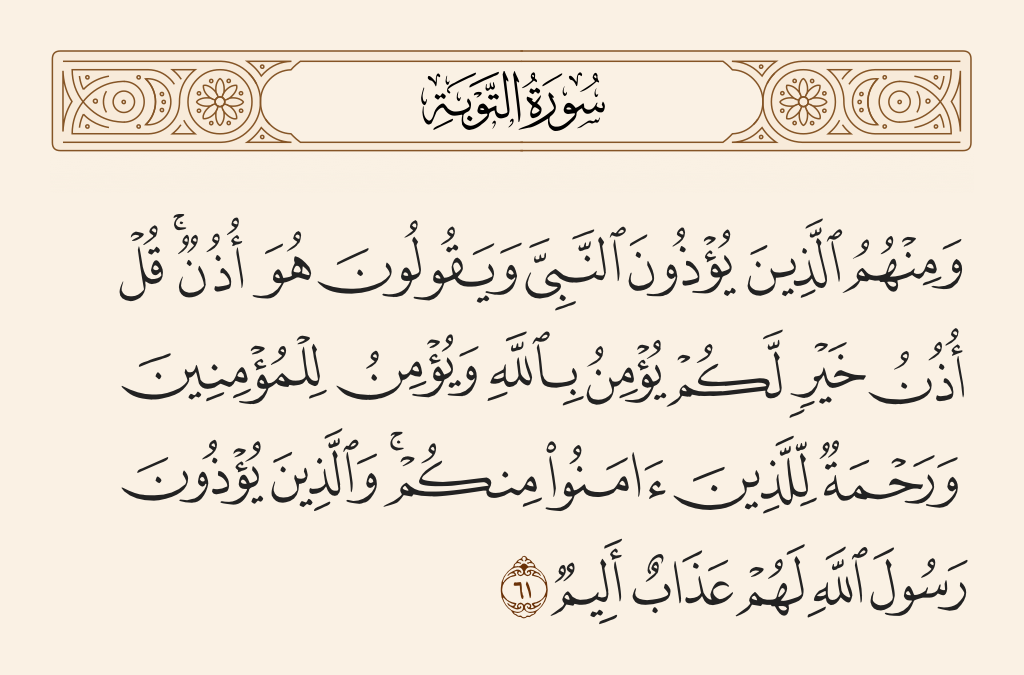 سُورَةُ التَّوْبَةِ
وَمِنْهُمُ ٱلَّذِينَ يُؤْذُونَ ٱلنَّبِىَّ وَيَقُولُونَ هُوَ أُذُنٌۭ ۚ قُلْ
أُذُنُ خَيْرٍۢ لَّكُمْ يُؤْمِنُ بِٱللَّهِ وَيُؤْمِنُ لِلْمُؤْمِنِينَ
وَرَحْمَةٌۭ لِّلَّذِينَ ءَامَنُوا۟ مِنكُمْ ۚ وَٱلَّذِينَ يُؤْذُونَ
رَسُولَ ٱللَّهِ لَهُمْ عَذَابٌ أَلِيمٌۭ ٦١